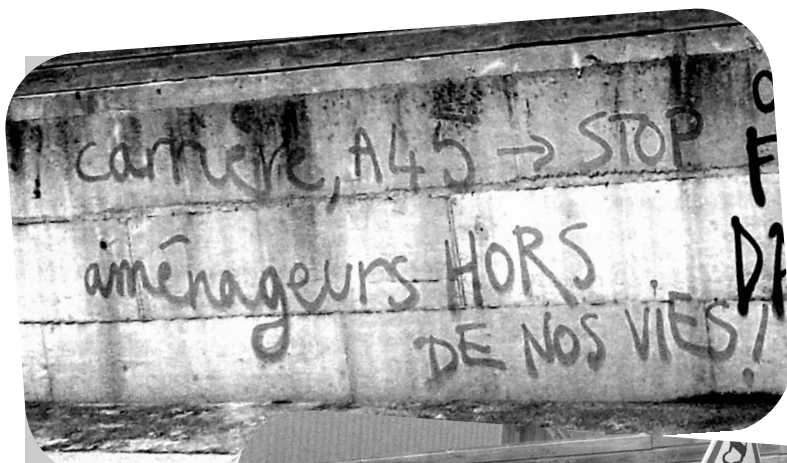 carrière, A45 → STOP
aménageurs HORS
DE NOS VIES!